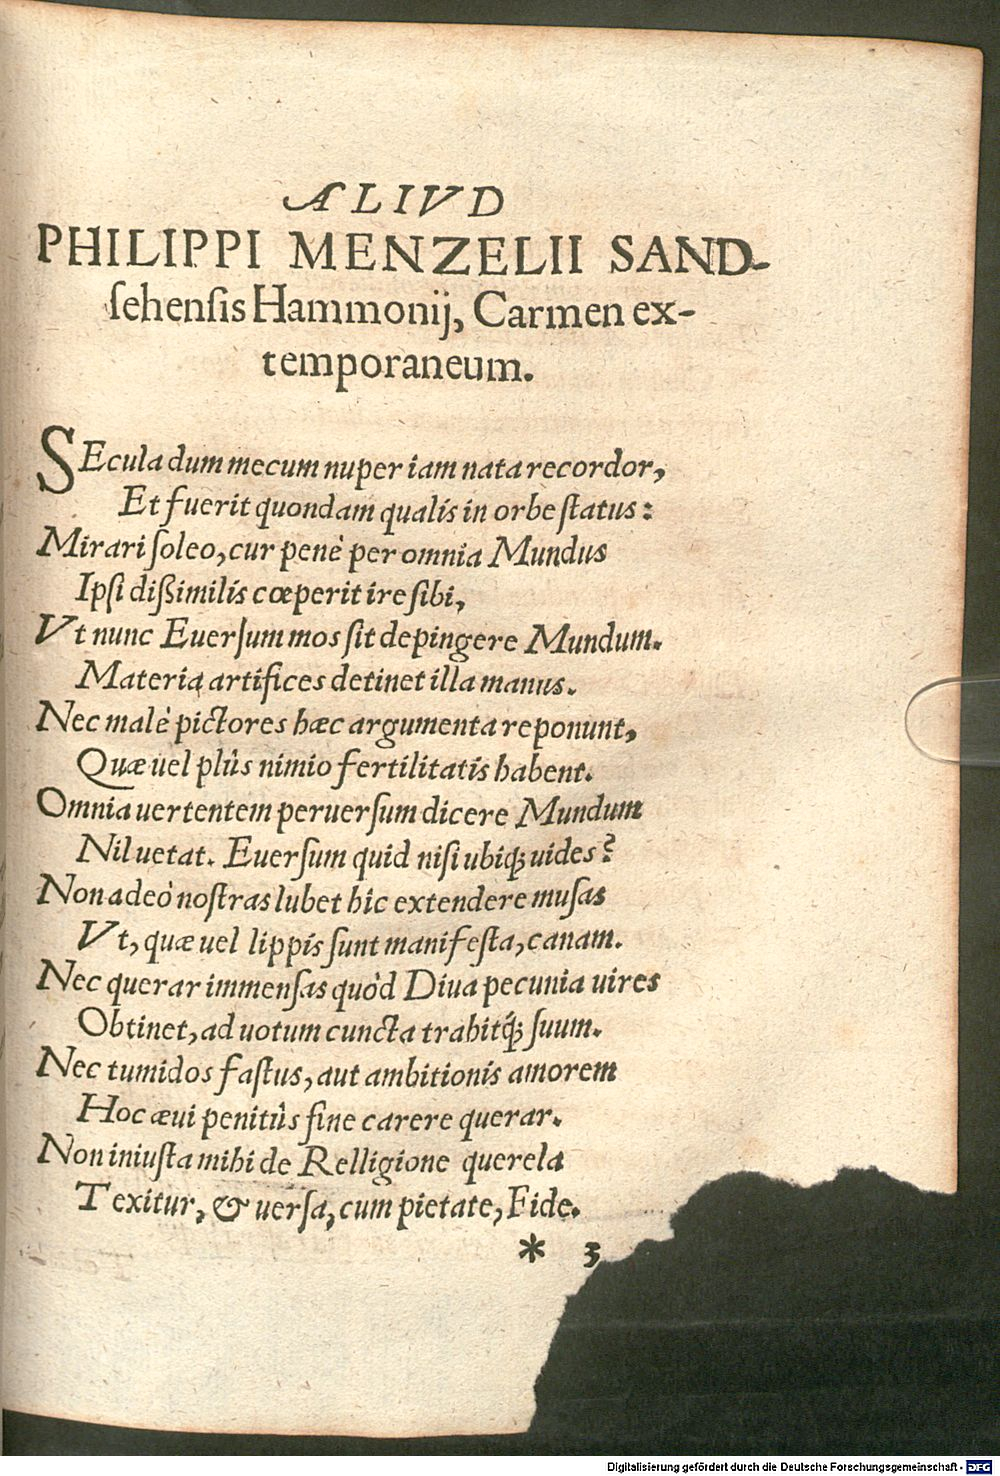 ALIVD
PHILIPPI MENZELII SAND-
ſehenſis Hammonij, Carmen ex-
temporaneum.
SEcula dum mecum nuper iam nata recordor,
Et fuerit quondam qualis in orbe ſtatus:
Mirari ſoleo, cur penè per omnia Mundus
Ipſi dißimilis cœperit ire ſibi,
Vt nunc Euerſum mos ſit depingere Mundum.
Materia artifices detinet illa manus.
Nec malè pictores hæc argumenta reponunt,
Quæ uel plùs nimio fertilitatis habent.
Omnia uertentem peruerſum dicere Mundum
Nil uetat. Euerſum quid niſi ubiq; uides?
Non adeò noſtras lubet hic extendere muſas
Vt, quæ uel lippis ſunt manifeſta, canam.
Nec querar immenſas quòd Diua pecunia uires
Obtinet, ad uotum cuncta trahitq́; ſuum.
Nec tumidos faſtus, aut ambitionis amorem
Hoc æui penitùs ſine carere querar.
Non iniuſta mihi de Relligione querela
Texitur, & uerſa, cum pietate, Fide.
* 3
Digitalisierung gefördert durch die Deutsche Forschungsgemeinschaft - DFG